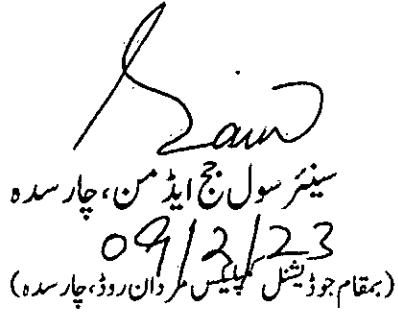 سینئر سول جج ایڈمن، چارسدہ
09/2/23
(بمقام جوڈیشل کمپلیکس مردان روڈ، چارسدہ)